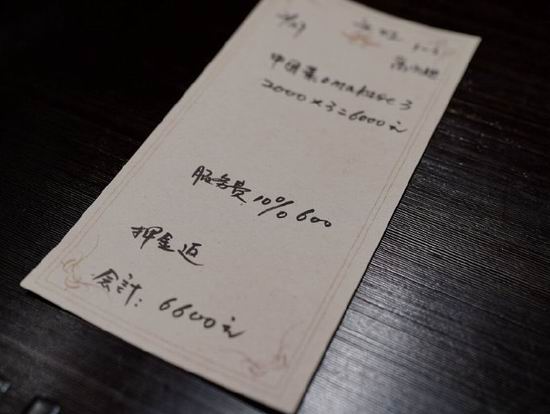 中国菜omakase 3
2000×3=6000元
服务费10% 600
押金返
合計:6600元